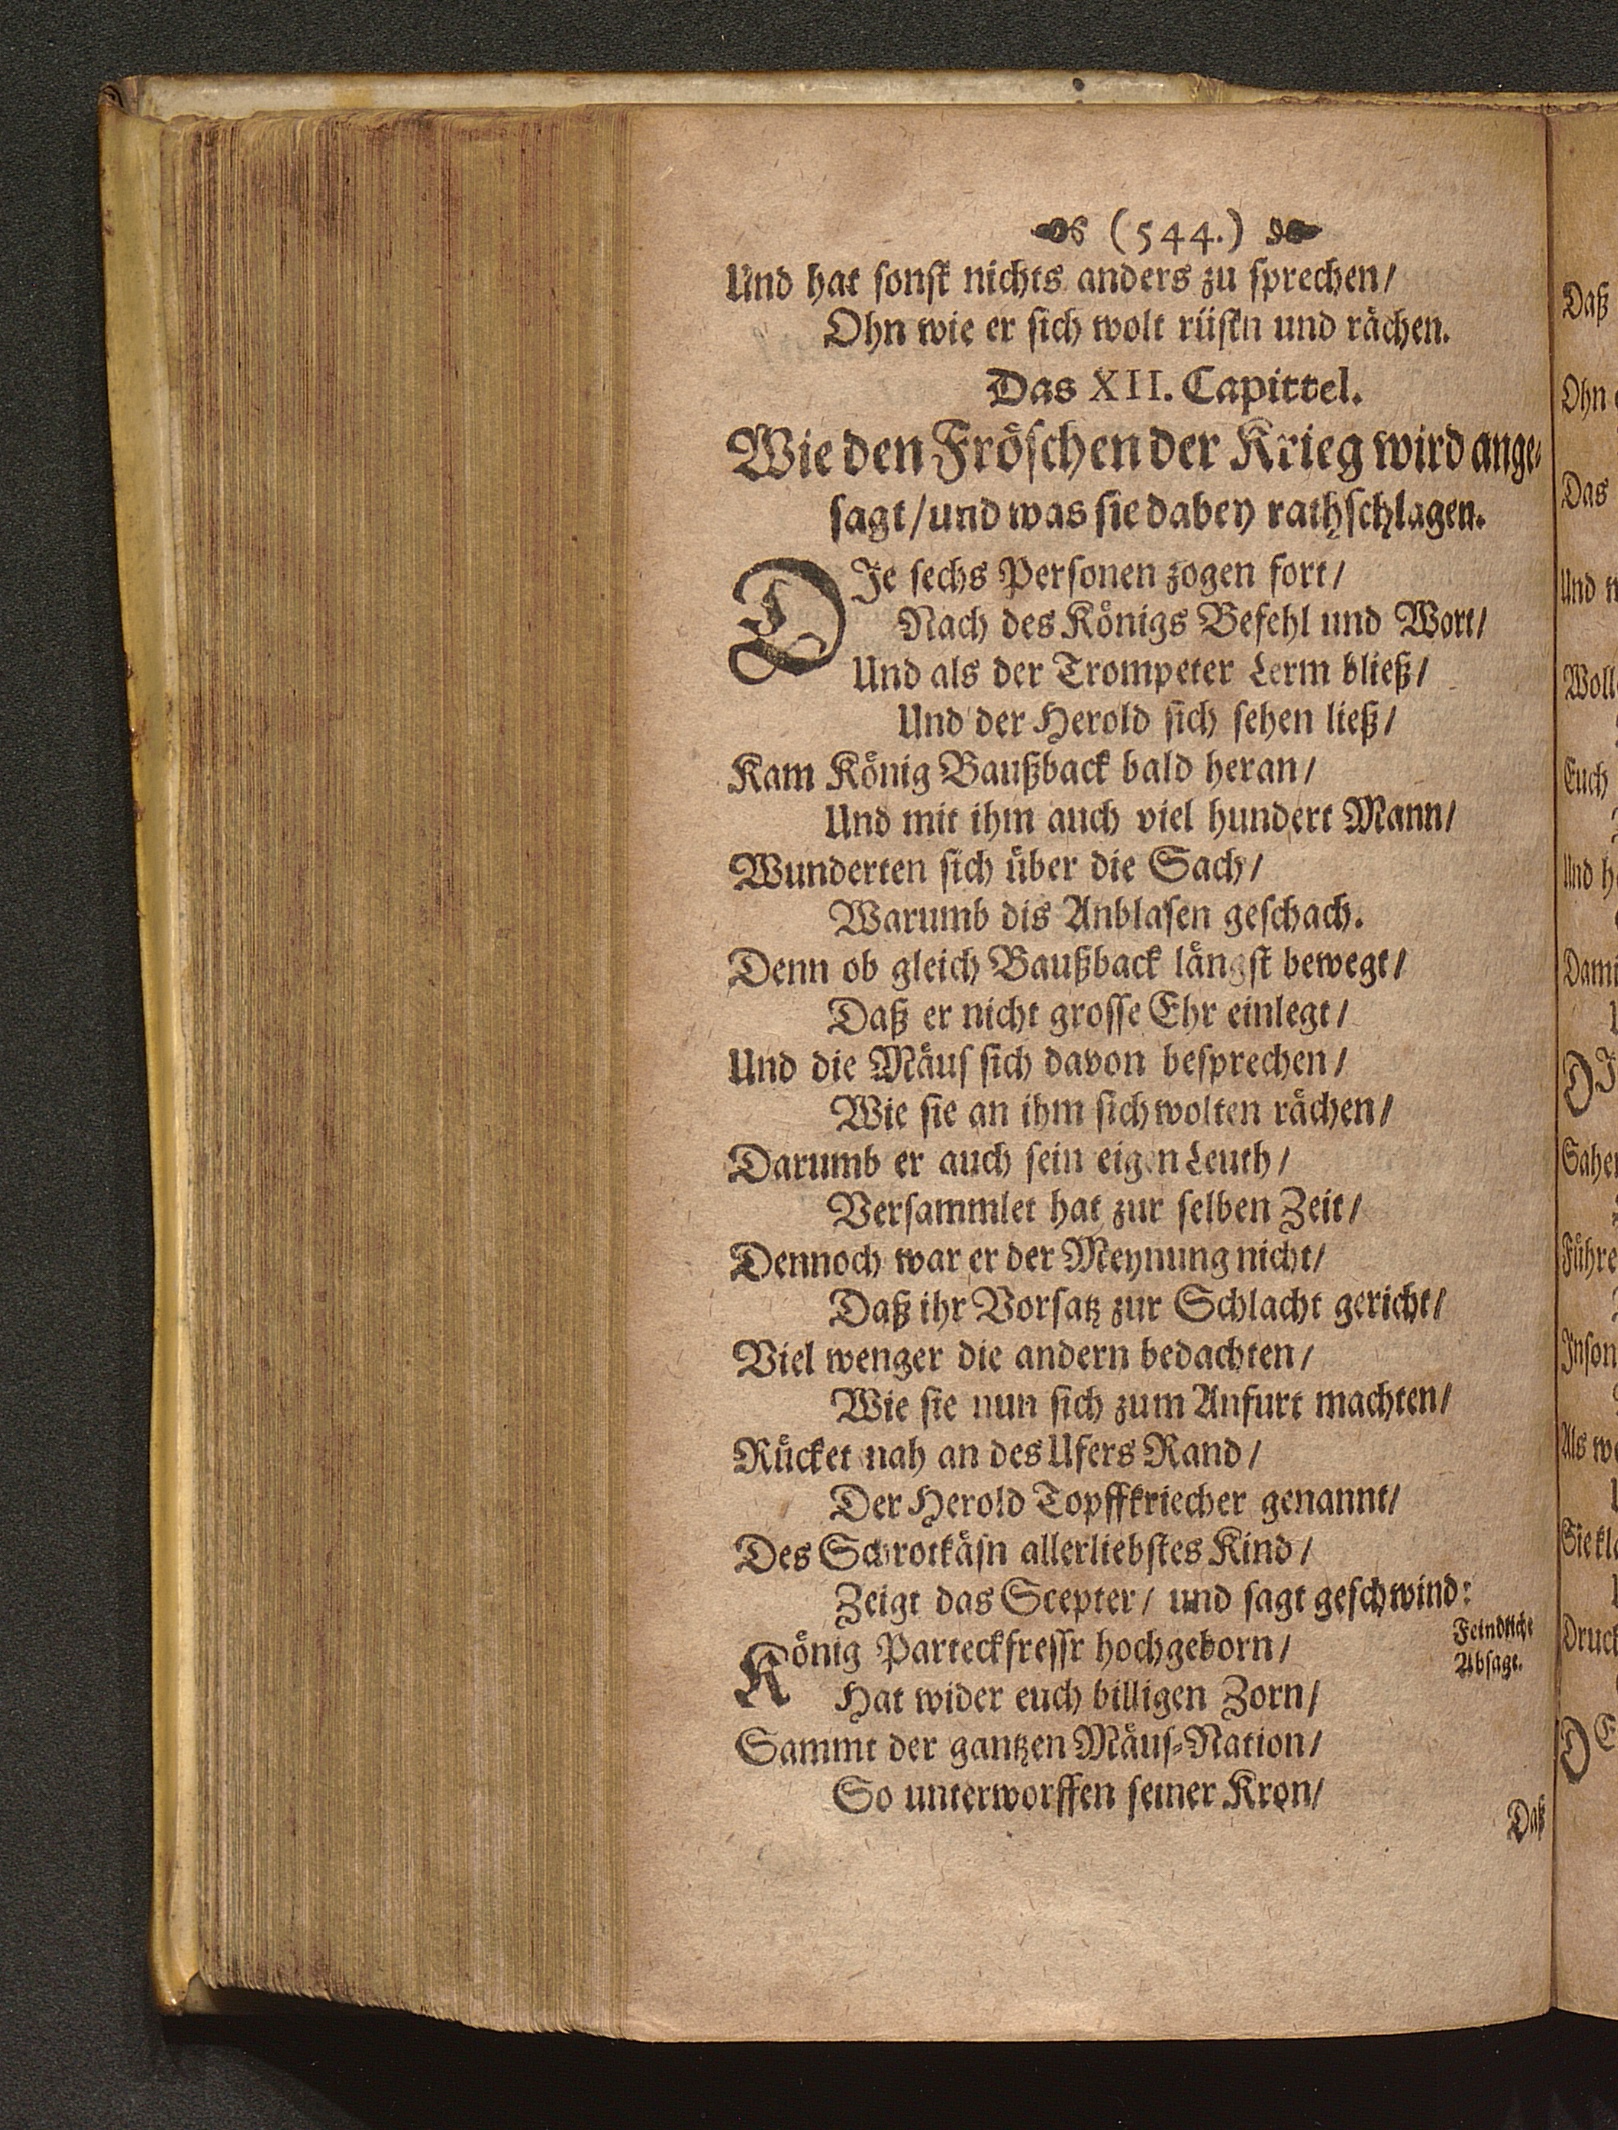 (544.)
Und hat ſonſt nichts anders zu ſprechen/
Ohn wie er ſich wolt rüſtn und rächen.
Das XII. Capittel.
Wie den Fröſchen der Krieg wird ange⸗
ſagt/ und was ſie dabey rathſchlagen.
DIe ſechs Perſonen zogen fort/
Nach des Königs Befehl und Wort/
Und als der Trompeter Lerm bließ/
Und der Herold ſich ſehen ließ/
Kam König Baußback bald heran/
Und mit ihm auch viel hundert Mann/
Wunderten ſich über die Sach/
Warumb dis Anblaſen geſchach.
Denn ob gleich Baußback längſt bewegt/
Daß er nicht groſſe Ehr einlegt/
Und die Mäuſ ſich davon beſprechen/
Wie ſie an ihm ſich wolten rächen/
Darumb er auch ſein eigen Leuth/
Verſammlet hat zur ſelben Zeit/
Dennoch war er der Meynung nicht/
Daß ihr Vorſatz zur Schlacht gericht/
Viel wenger die andern bedachten/
Wie ſie nun ſich zum Anfurt machten/
Rücket nah an des Ufers Rand/
Der Herold Topffkriecher genannt/
Des Schrotkäſn allerliebſtes Kind/
Zeigt das Scepter/ und ſagt geſchwind:
König Parteckfreſſr hochgeborn/
Feindliche
Abſage.
Hat wider euch billigen Zorn/
Sammt der gantzen Mäuſ⸗Nation/
So unterworffen ſeiner Kron/
Daß
Daß
Ohn
Das
Und
Euch
Und